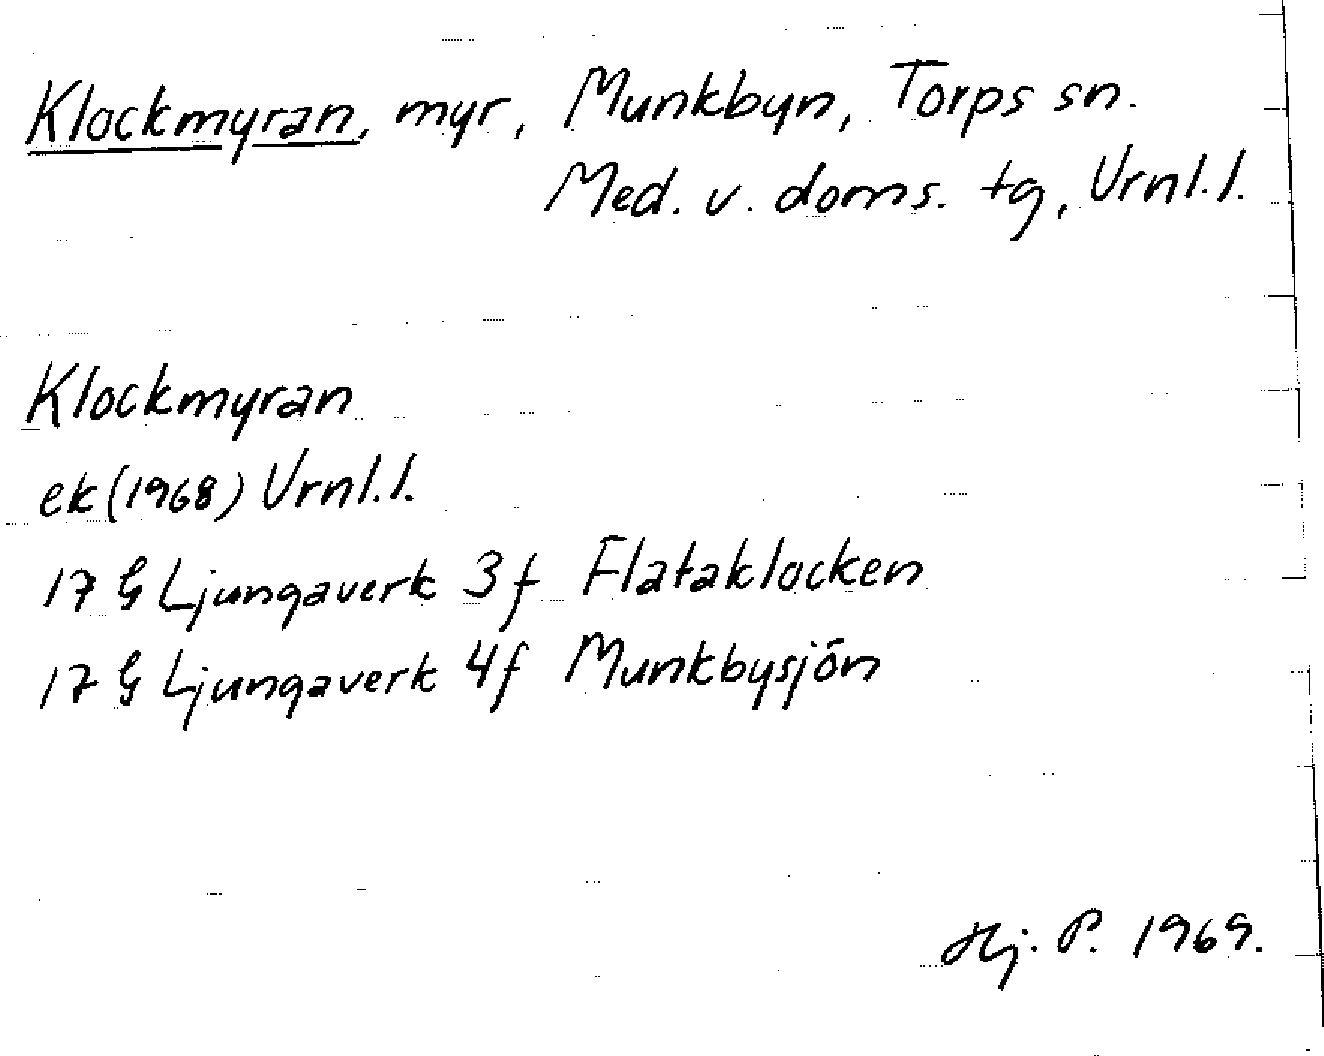 Klockmyran, myr, Munkbyn, Torps sn.
Med. v. doms. tg, Vrnl. l.
Klockmyran
ek (1968) Vrnl. l.
17 G Ljungaverk 3f Flataklocken
17 G Ljungaverk 4f Munkbysjön
Hj. P. 1969.